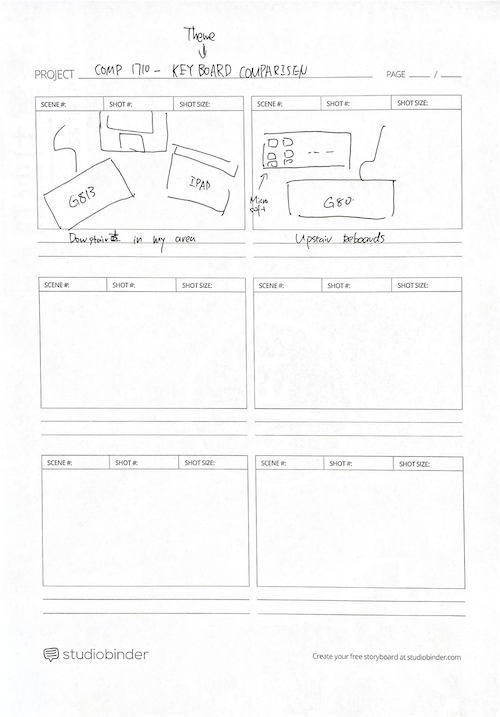 Theme
PROJECT COMP 1710 - KEYBOARD COMPARISEN PAGE ____ / ____
SCENE #: SHOT #: SHOT SIZE: SCENE #: SHOT #: SHOT SIZE:
G813
IPAD
Micro
soft
G80
Dowstair in my area
Upstair keboards
SCENE #: SHOT #: SHOT SIZE: SCENE #: SHOT #: SHOT SIZE:
SCENE #: SHOT #: SHOT SIZE: SCENE #: SHOT #: SHOT SIZE:
studiobinder
Create your free storyboard at studiobinder.com